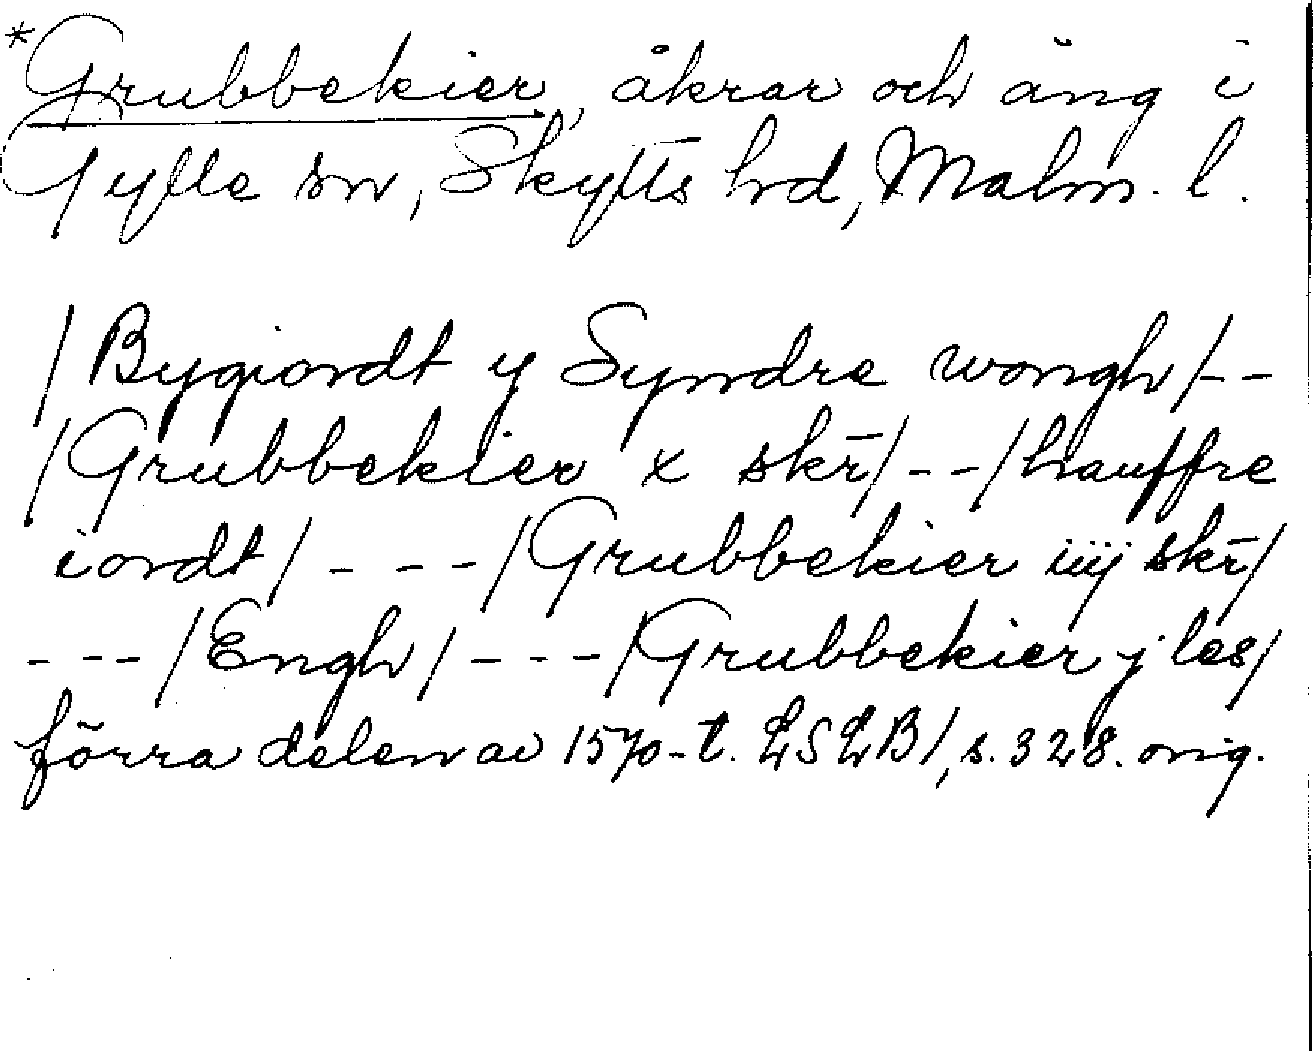 *Grubbekier, åkrar och äng i
Gylle sn, Skytts hd, Malm. l.
/Bygiordt y Syndre wongh/--
/Grubbekier x skr̄/--/hauffre
iordt/---/Grubbekier iiij skr̄/
---/Engh/---/Grubbekier j les/
förra delen av 1570-t. LSLB1, s. 328. orig.